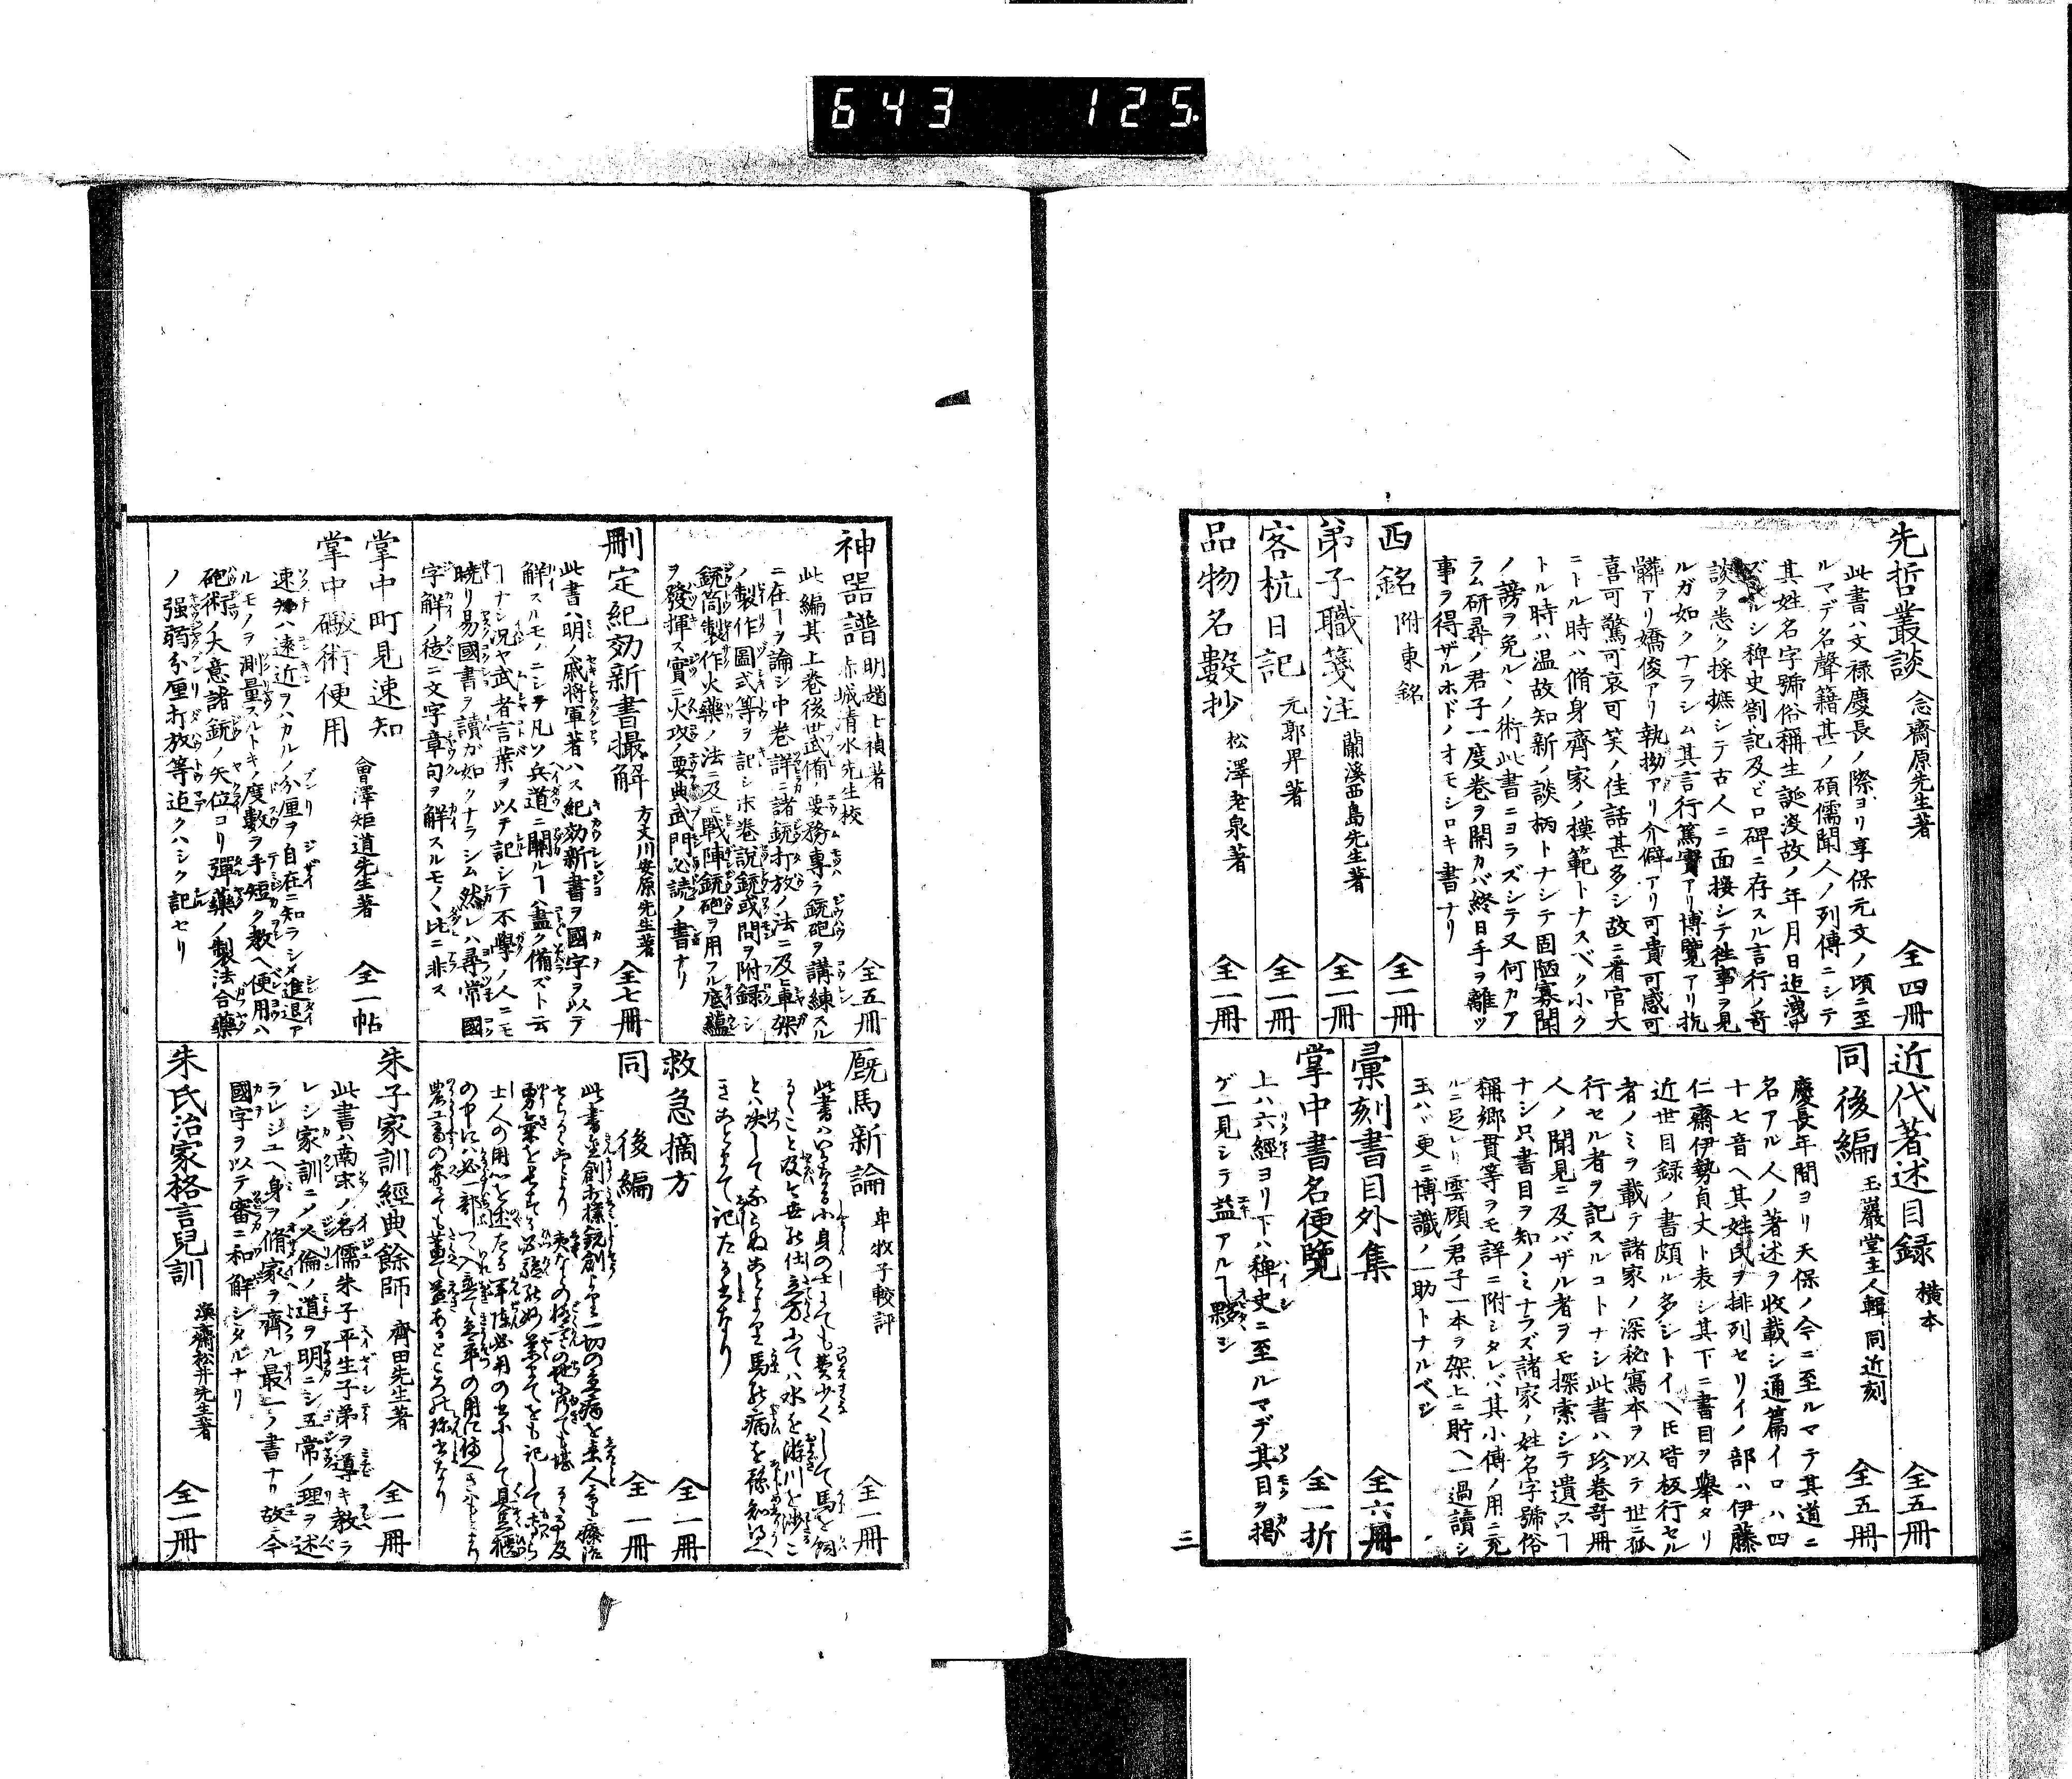 643 125
先哲叢談 念齋原先生著 全四冊
此書ハ文禄慶長ノ際ヨリ享保元文ノ頃ニ至
ルマデ名聲籍甚ノ碩儒聞人ノ列傳ニシテ
其姓名字號俗稱生誕没故ノ年月日迄洩
シ稗史劄記及ビ口碑ニ存スル言行ノ竒
談ヲ悉ク採摭シテ古人ニ面接シテ徃事ヲ見
ルガ如クナラシム其言行篤實アリ博覽アリ抗
髒アリ嬌俊アリ執拗アリ介僻アリ可貴可感可
喜可驚可哀可笑ノ佳話甚多シ故ニ看官大
ニトル時ハ脩身齊家ノ模範トナスベク小ク
トル時ハ温故知新ノ談柄トナシテ固陋寡聞
ノ謗ヲ免ルヽノ術此書ニヨラズシテ又何カア
ラム研尋ノ君子一度巻ヲ開カバ終日手ヲ離ツ
事ヲ得ザルホドノオモシロキ書ナリ
西銘 附東銘 全一冊
弟子職箋注 蘭溪西島先生著 全一冊
客杭日記 元郭畀著 全一冊
品物名數抄 松澤老泉著 全一冊
近代著述目録 横本 全五冊
同後編 玉巖堂主人輯 同近刻 全五冊
慶長年間ヨリ天保ノ今ニ至ルマテ其道ニ
名アル人ノ著述ヲ收載シ通篇イロハ四
十七音ヘ其姓氏ヲ排列セリイノ部ハ伊藤
仁齋伊勢貞丈ト表シ其下ニ書目ヲ舉タリ
近世目録ノ書頗ル多シトイヘ𪜈皆板行セル
者ノミヲ載テ諸家ノ深秘寫本ヲ以テ世ニ孤
行セル者ヲ記スルコトナシ此書ハ珍巻竒冊
人ノ聞見ニ及バザル者ヲモ探索シテ遺スヿ
ナシ只書目ヲ知ノミナラズ諸家ノ姓名字號俗
稱郷貫等ヲモ詳ニ附シタレバ其小傳ノ用ニ充
ルニ足レリ雲願ノ君子一本ヲ架上ニ貯ヘ一過讀シ
玉ハヾ更ニ博識ノ一助トナルベシ
彙刻書目外集 全六冊
掌中書名便覽 全一折
上ハ六經ヨリ下ハ稗史ニ至ルマデ其目ヲ掲
ゲ一見シテ益アルヿ夥シ
三
神器譜 明趙士禎著 赤城清水先生校 全五冊
此編其上巻後世武備ノ要務專ラ銃砲ヲ講練スル
ニ在ヿヲ論シ中巻詳ニ諸銃打放ノ法ニ及ヒ車架
ノ製作圖式等ヲ記シ末巻説銃或問ヲ附録シ
銃筒製作火藥ノ法ニ及ヒ戰陣銃砲ヲ用フル底蘊
ヲ發揮ス實ニ火攻ノ要典武門必読ノ書ナリ
刪定紀効新書撮解 方丈川安原先生著 全七冊
此書ハ明ノ戚将軍著ハス紀効新書ヲ國字ヲ以テ
解スルモノニシテ凡ソ兵道ニ關ルヿハ盡ク備ズト云
ヿナシ况ヤ武者言葉ヲ以テ記シテ不學ノ人ニモ
曉リ易國書ヲ讀ガ如クナラシム然レハ尋常國
字解ノ徒ニ文字章句ヲ解スルモノヽ比ニ非ス
掌中町見速知
掌中礟術便用 會澤矩道先生著 全一帖
速知ハ遠近ヲハカルノ分厘ヲ自在ニ知ラシメ進退ア
ルモノヲ測量スルトキノ度數ヲ手短ク教ヘ便用ハ
砲術ノ大意諸銃ノ矢位ヨリ彈藥ノ製法合藥
ノ强弱分厘打放等迄クハシク記セリ
厩馬新論 牽牧子較評 全一冊
此書ハいかなる小身の士にても費少くして馬を飼
ること及ヒ廐の仕立方
きあとまて記したる書なり
救急摘方 全一冊
同 後編 全一冊
朱子家訓經典餘師 齊田先生著 全一冊
此書ハ南宋ノ名儒朱子平生子弟ヲ導キ教ヘラ
レシ家訓ニノ人倫ノ道ヲ明ニシ五常ノ理ヲ述
ラレシユヘ身ヲ脩家ヲ齊ル最一ノ書ナリ故ニ今
國字ヲ以テ審ニ和解シタルナリ
朱氏治家格言兒訓 松井先生著 全一冊